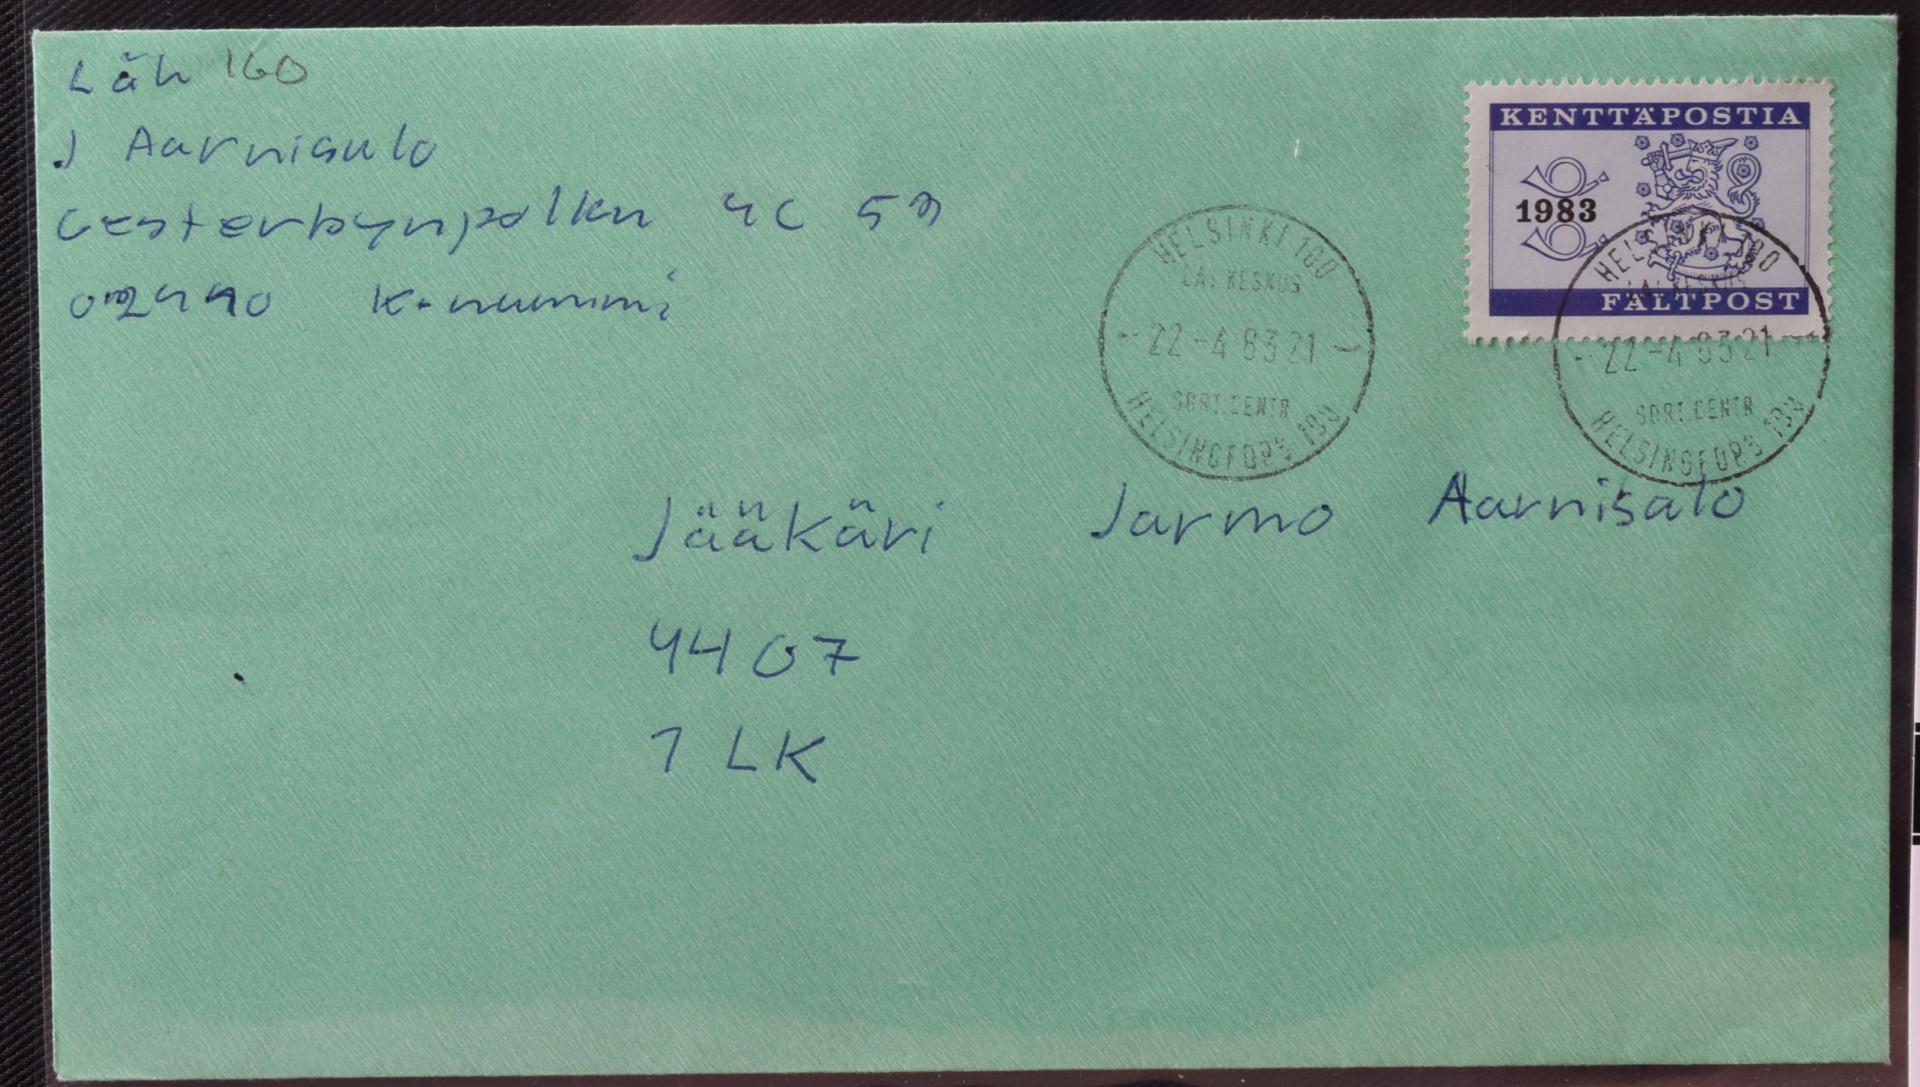 Läh 160
J Aarnisalo
Gesterbynpolku 4C 59
02440 K-nummi
KENTTÄPOSTIA
1983
FÄLTPOST
HELSINKI 100
LAJ.KESKUS
22-4 83 21
SORT.CENTR
HELSINGFORS 100
HELSINKI 100
LAJ.KESKUS
22-4 83 21
SORT.CENTR
HELSINGFORS 100
Jääkäri Jarmo Aarnisalo
4407
1 LK